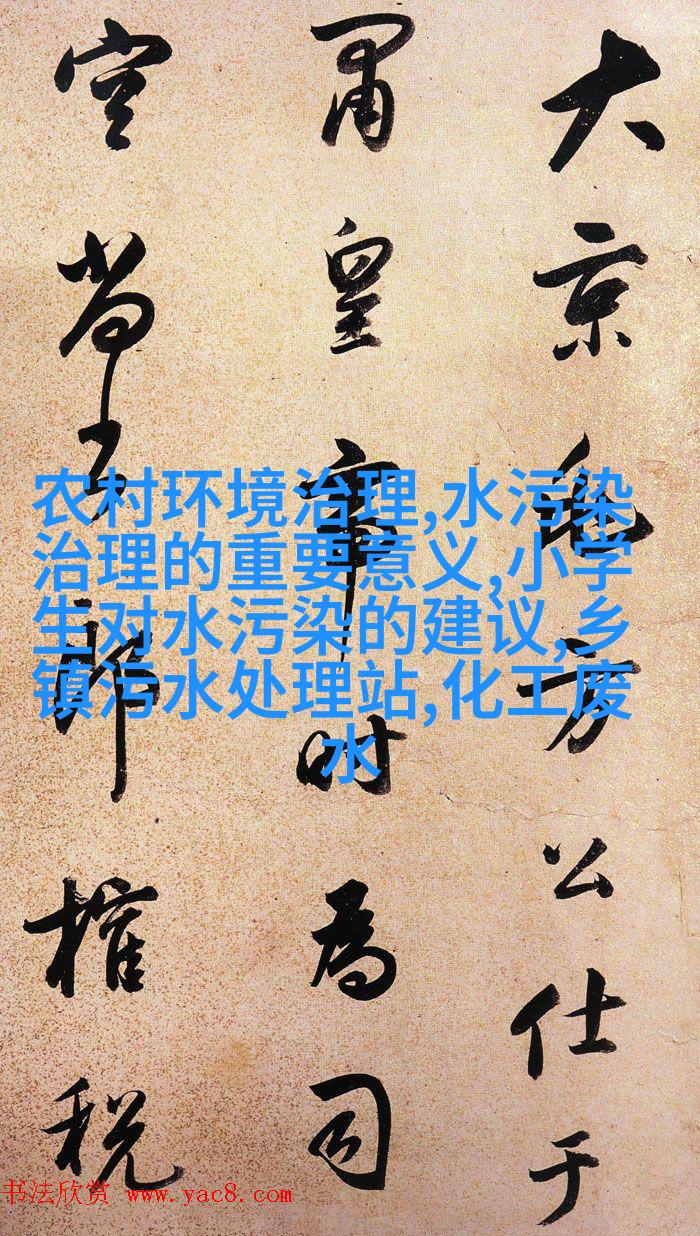 大京兆方公仕于
肅皇帝時為司
空尚書郎榷税
农村环境治理,水污染
治理的重要意义,小学
生对水污染的建议,乡
镇污水处理站,化工废
水
书法欣赏 www.yac8.com